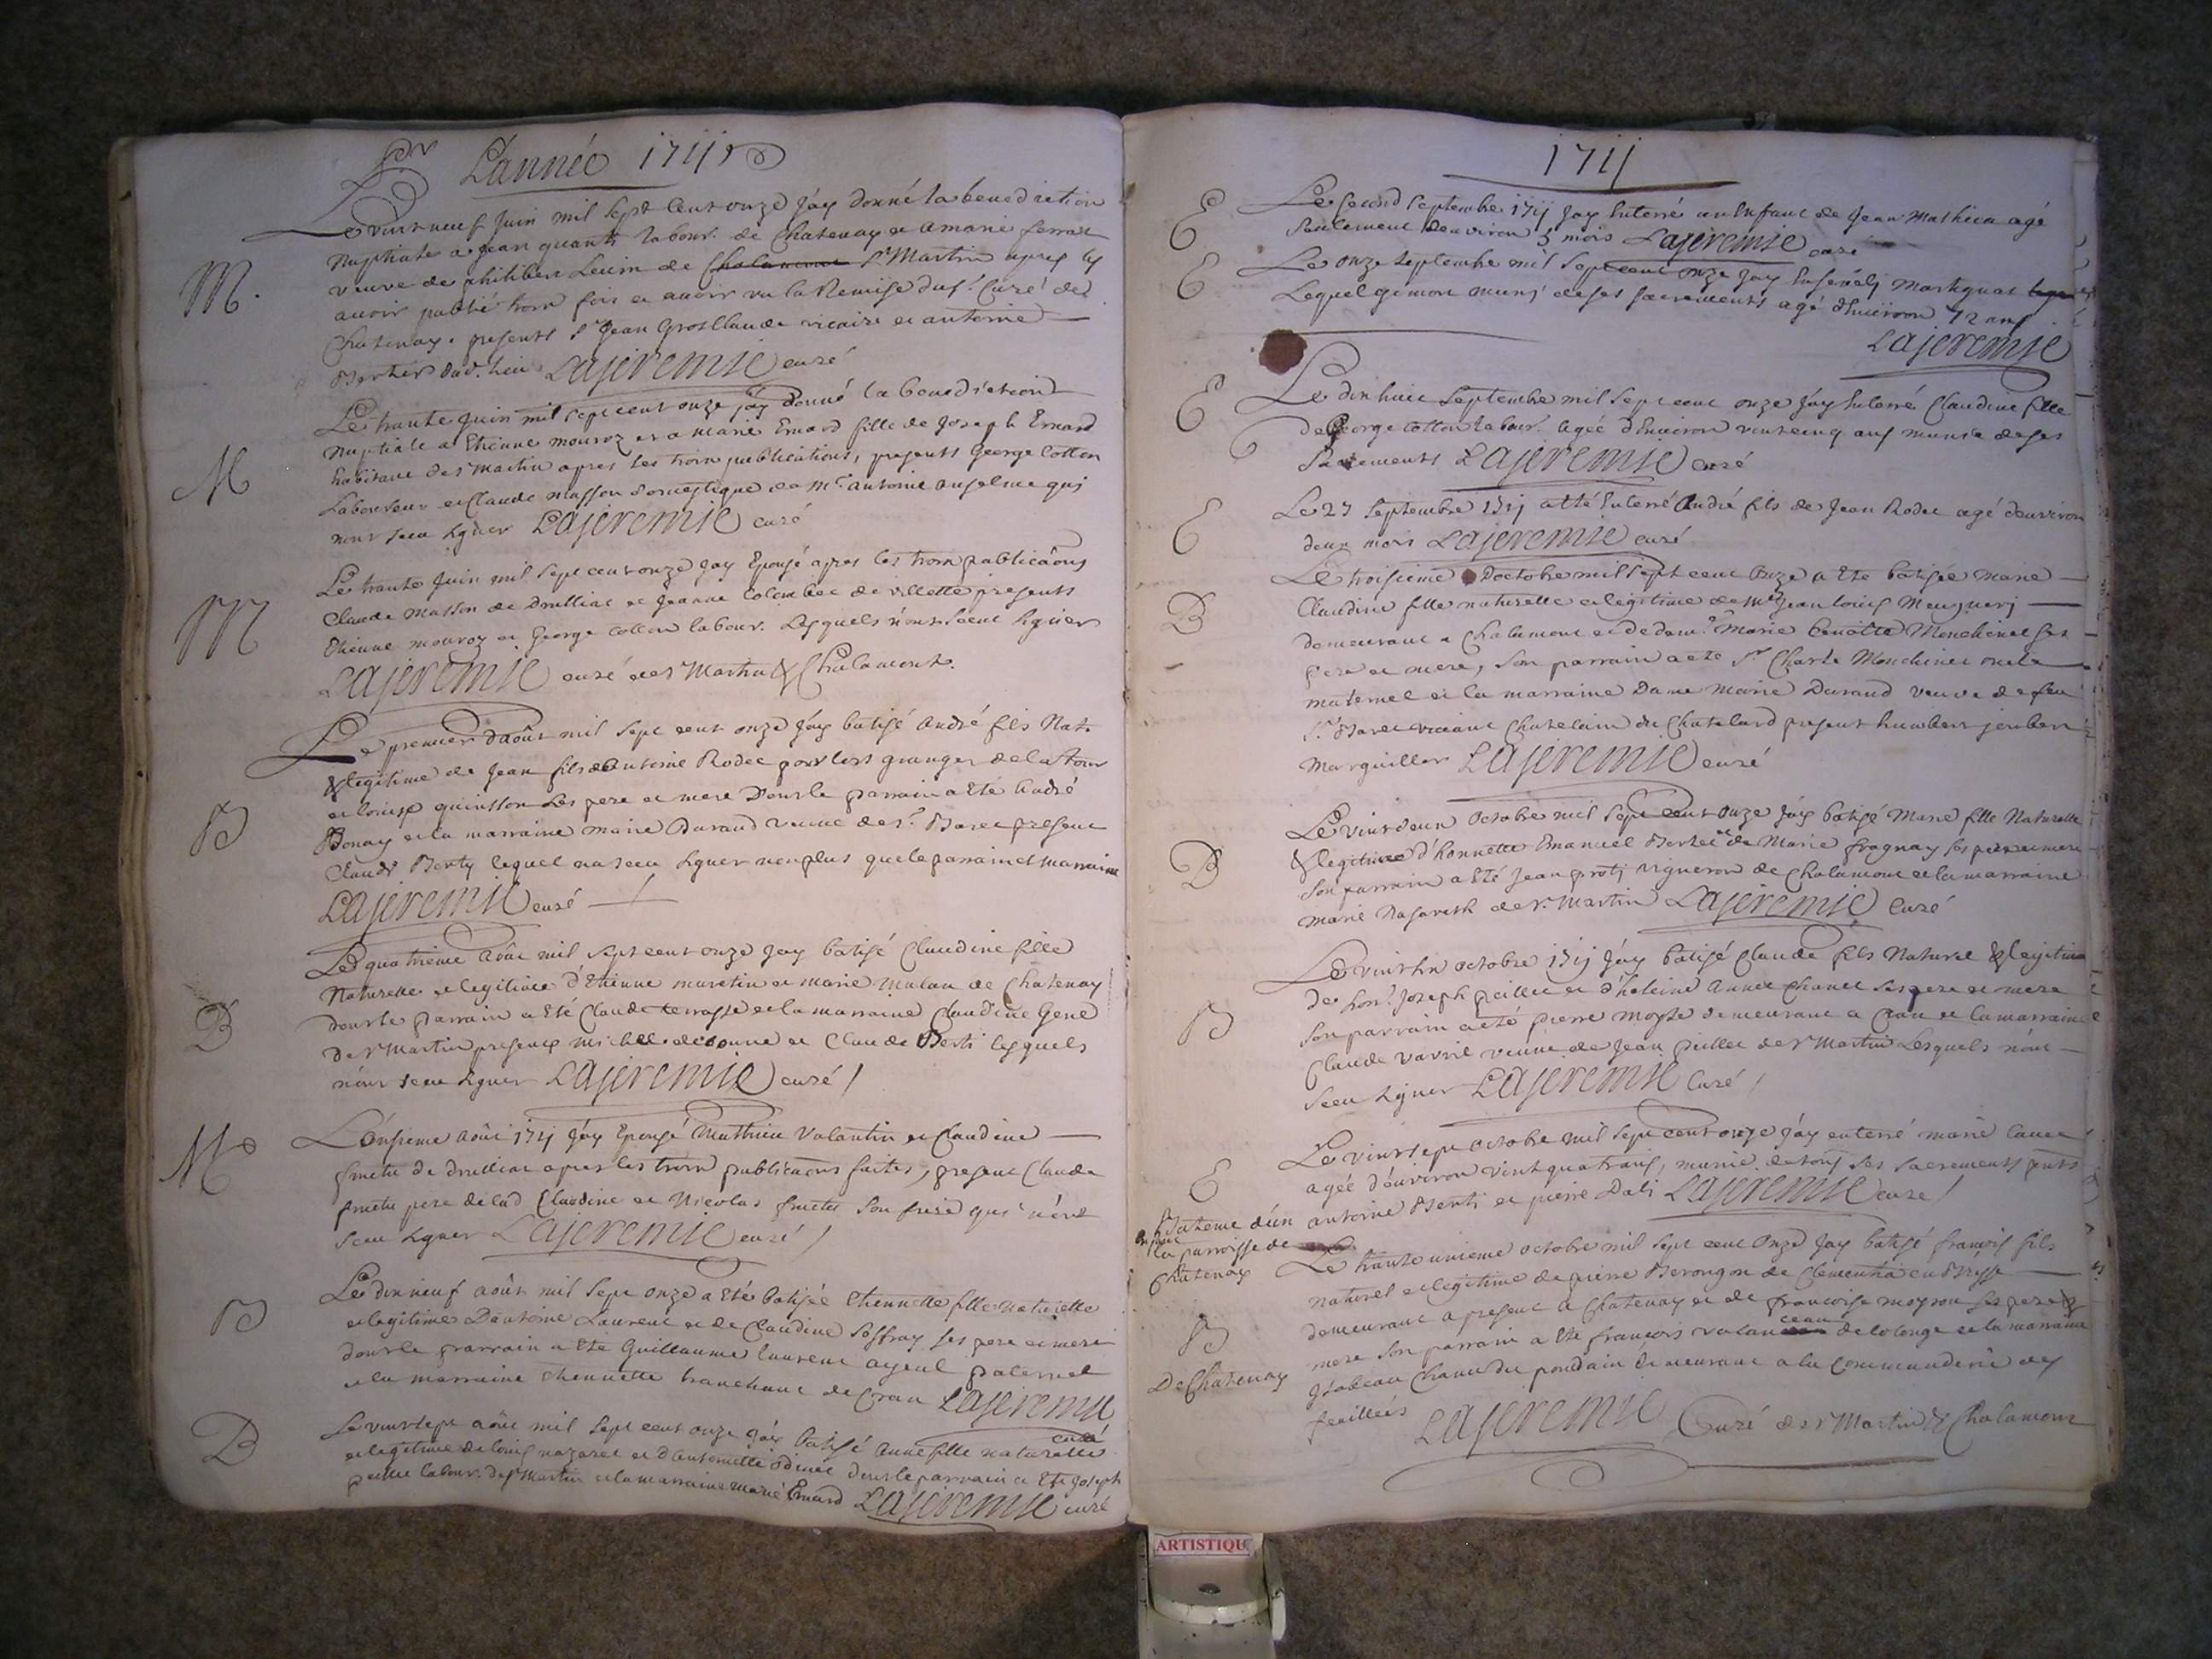 Pr L'année 1711
Le vint neuf Juin mil sept Cent onze j'ay donné la benediction
nuptiale a Jean quanti labour. de Chatenay et a marie ferrat
veuve de philibert de Chalamont St Martin apres les
avoir publié trois fois et avoir vu la Remise du sr Curé de
Chatenay. presents Sr Jean Grosclaude vicaire et antoine
Berthet dud. lieu Lajeremie curé
M.
Le trante Juin mil sept cent onze j'ay donné la benediction
nuptiale a Etienne mouroz et a marie Emard fille de Joseph Emard
habitant de St martin apres les trois publications, presents George Cotton
Laboureur et Claude masson domestique de Mr antoine anselme qui
n'ont sceu signer Lajeremie curé
M
Le trante Juin mil sept cent onze j'ay Epousé apres les trois publicãons
Claude Masson de Druillat et Jeanne Colombet de villette presents
Etienne mouroz et George cotton labour. Lesquels n'ont sceut signer
Lajeremie curé de St Martin & Chalamont.
M
Le premier d'aoûst mil sept cent onze j'ay batisé André fils Nat.
& legitime de Jean fils d'Antoine Rodet pour lors granger de la tour
et louise quinsson ses pere et mere Dont le parrain a Eté André
Bonay et la marraine marie Durand veuve de sr Baret present
Claude Berty lequel na sceu signer non plus que le parrain et marraine
Lajeremie curé
B
Le quatrieme Aôut mil sept cent onze j'ay batisé Claudine fille
Naturelle et legitime d'Etienne muretin et marie mulan de Chatenay
dont le parrain a Eté Claude terrasse et la marraine Claudine Gene
de St Martin presents michel et Claude Berti lesquels
n'ont sceu signer Lajeremie curé /
B
L'onsieme Aôut 1711 j'ay Epousé Mathieu Valantin et Claudine
fructu de druillat apres les trois publicãons faites, present Claude
fructu pere de lad Claudine et Nicolas fructu son frere qui n'ont
sceu signer Lajeremie curé /
M
Le dix neuf aôut mil sept onze a eté batisée Etiennette fille naturelle
et legitime D'antoine Laurent et de Claudine Soffray ses pere et mere
dont le parrain a Eté Guillaume laurent ayeul paternel
et la marraine Etiennette tranchant de Cran Lajeremie
curé
B
Le vint sept aôut mil sept cent onze j'ay batisé Anne fille naturelle
et legitime de louis nazaret et d'antoinette dont le parrain a Eté Joseph
peillet labour. de St Martin et la marraine Marie Emard Lajeremie curé
B
1711
E Le second septembre 1711 j'ay Enterré un Enfant de Jean Mathieu agé
seulement denviron 3 mois Lajeremie curé
E Le onze septembre mil sept cent onze j'ay Enseveli
Lequel est mort muni de ses sacrements agé d'environ 72 ans
Lajeremie
E Le dix huit septembre mil sept cent onze j'ay Enterré Claudine fille
de George cotton labour. agée d'Environ vint cinq ans munie de ses
Sacrements Lajeremie curé
E Le 27 septembre 1711 a été Enterré André fils de Jean Rodet agé denviron
deux mois Lajeremie curé
B Le troisieme D'octobre mil sept cent Onze a Eté batisée marie
Claudine fille naturelle et legitime de Mr Jean louis
demeurant a Chalamont et de dam. Marie benoitte Monchinet ses
pere et mere, son parrain a été Sr Charle Monchinet oncle
maternel et la marraine Dame Marie Durand veuve de feu
Sr Baret vivant Chatelain du Chatelard present humbert joubert
Marguillier Lajeremie curé
B Le vint deux Octobre mil sept cent onze j'ay batisé Marie fille Naturelle
& legitime d'honnette Emanuel Berthet et de Marie fragnay ses pere et mere
son parrain a Eté Jean proti vigneron de Chalamont et la marraine
marie Nasareth de St Martin Lajeremie Curé
B Le vint six octobre 1711 j'ay batisé Claude fils Naturel & legitime
de hon. Joseph peillet et d'heleine Annee Chanel ses pere et mere
son parrain a eté pierre moyse demeurant a Cran et la marraine
Claude vavril veuve de Jean peillet de St Martin Lesquels n'ont
sceu signer Lajeremie Curé /
E Le vint sept octobre mil sept cent onze j'ay enterré marie
agée d'environ vint quatre ans, munie de tous ses sacrements pnts
antoine Berti et pierre Dali Lajeremie curé /
Bateme d'un
enfant
la parroisse de
Chatenay
B
De Chatenay
Le trante unieme octobre mil sept cent onze j'ay batisé françois fils
naturel et legitime de pierre Berongon de Clementia en Bresse
demeurant a present a Chatenay et de françoise moyron ses pere &
mere son parrain a Eté françois de lolonge et la marraine
Isabeau Chanu du pondain demeurant a la Commanderie des
feuillées Lajeremie Curé de St Martin & Chalamont
ARTISTIQU